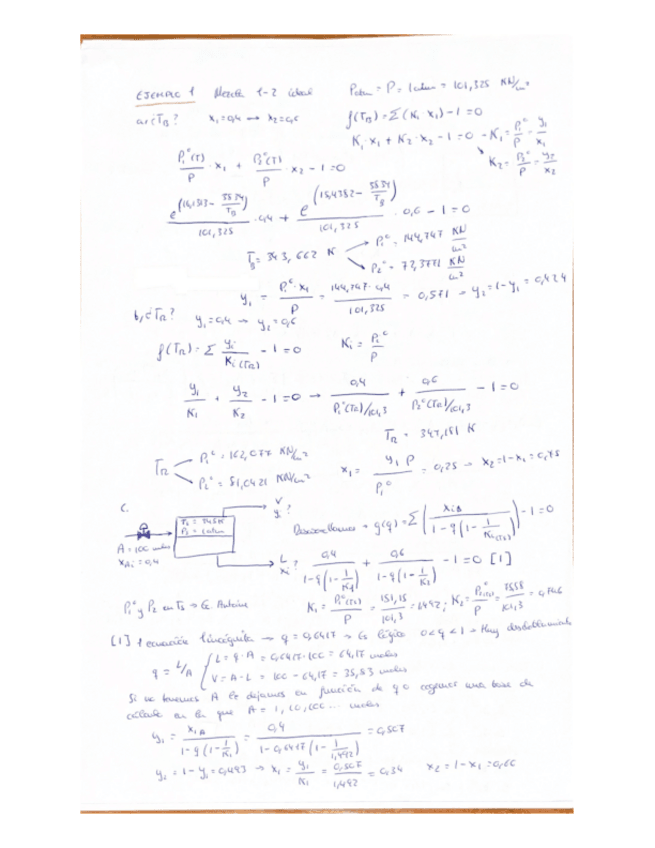 EJEMPLO 1 Mezcla 1-2 ideal Patm = P = 1 atm = 101,325 KN/m²
a) ¿TB? x₁=0,4 → x₂=0,6 f(TB) = Σ(Ki·Xi)-1=0
K₁·x₁ + K₂·x₂ - 1 = 0 → K₁ = P₁°/P = y₁/x₁
K₂ = P₂°/P = y₂/x₂
P₁°(T)/P · x₁ + P₂°(T)/P · x₂ - 1 = 0
/101,325 · 0,4 + /101,325 · 0,6 - 1 = 0
TB = 343,662 K → P₁° = 144,747 KN/m²
P₂° = KN/m²
y₁ = P₁°·x₁/P = 144,747·0,4/101,325 = 0,571 → y₂=1-y₁=
b) ¿TR? y₁=0,4 → y₂=0,6
f(TR) = Σ yi/Ki(TR) - 1 = 0 Ki = Pi°/P
y₁/K₁ + y₂/K₂ - 1 = 0 → 0,4/P₁°(TR)/101,3 + 0,6/P₂°(TR)/101,3 - 1 = 0
TR = 347,151 K
TR P₁° = 162,077 KN/m²
P₂° = 81,0421 KN/m²
x₁ = y₁P/P₁° = 0,25 → x₂=1-x₁=0,75
c. V yi?
Ts = 345K
Ps = 1 atm
A = 100 moles
xAi = 0,4
g(q) = Σ(xiA/1-q(1-1/Ki(Ts)))-1=0
L xi? 0,4/1-q(1-1/K₁) + 0,6/1-q(1-1/K₂) - 1 = 0 [1]
P₁° y P₂° en Ts → Ec Antoine K₁ = P₁°(Ts)/P = 151,15/101,3 = 1,492; K₂ = P₂°(Ts)/P = /101,3 = 0,746
[1] 1 ecuación 1 incógnita → q = 0,6417 → Es lógico 0<q<1 → Hay
q = L/A L = q·A = 0,6417·100 = 64,17 moles
V = A-L = 100 - 64,17 = 35,83 moles
Si no tenemos A lo dejamos en función de q o cogemos una base de
cálculo en la que A = 1, 10, 100... moles
y₁ = x₁A/1-q(1-1/K₁) = 0,4/1-0,6417(1-1/1,492) = 0,507
= 1-y₁=0,493 → x₁ = y₁/K₁ = 0,507/1,492 = 0,34 x₂=1-x₁=0,66